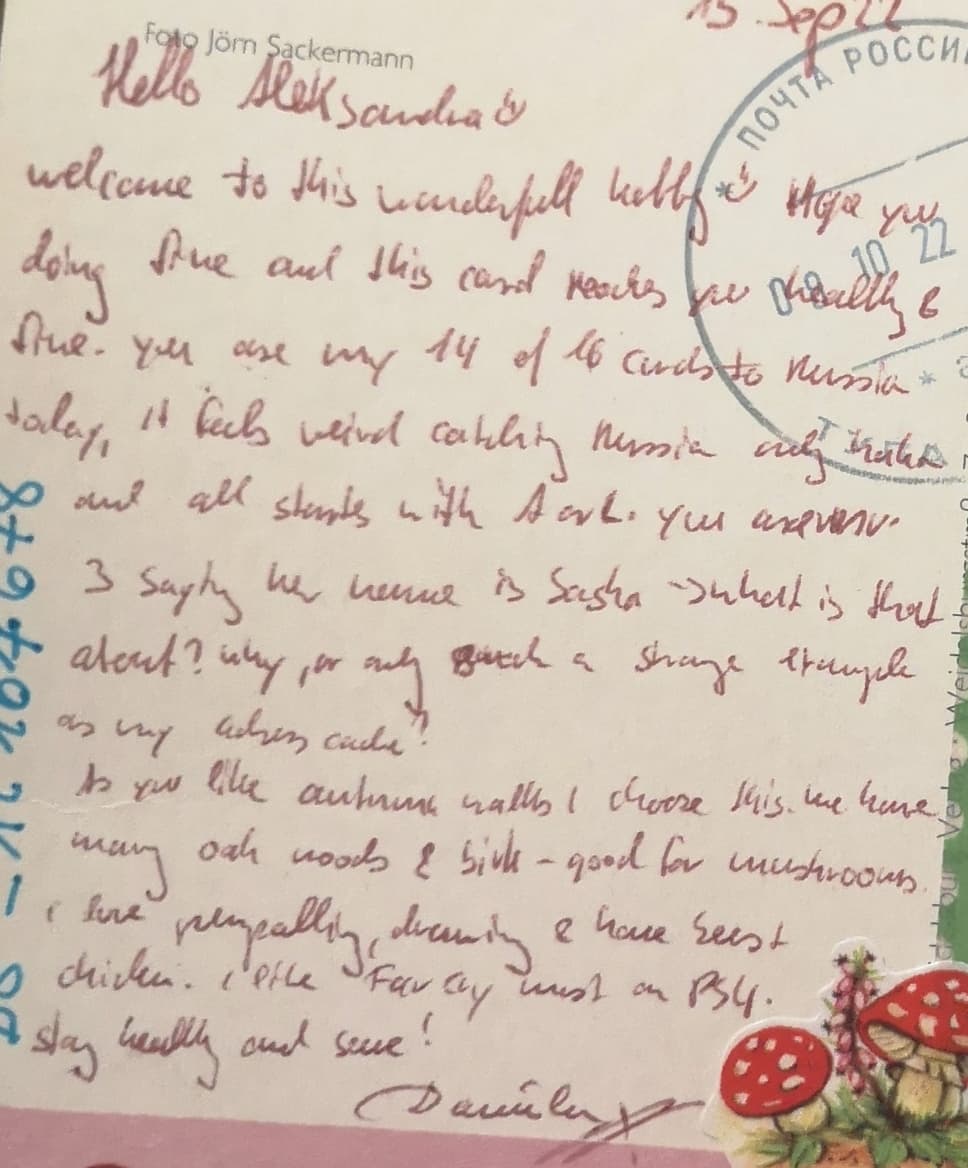 15. Sep 22
Foto Jörn Sackermann
Hello Aleksandra
ПОЧТА РОССИИ
welcome to this wonderfull hobby Hope you
doing fine and this card reaches you healthy &
08 10 22
fine. you are my 14 of 16 cards to Russia
today, it feels weird catching Russia only
and all starts with A or L. you are nr.
3 saying her name is Sasha -> what is that
about? why, or only such a strange example
as my adress code?
As you like autumn walks I choose this. we have
many oak woods & birk - good for mushrooms.
i love penpalling, drawing & have
chicken. i like Far Cry most on PS4.
stay healthy and save!
Daniela
DE-12104678